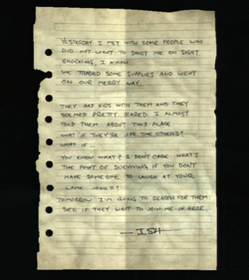 YESTERDAY I MET WITH SOME PEOPLE WHO
DID NOT WANT TO SHOOT ME ON SIGHT
SHOCKING, I KNOW.
WE TRADED SOME SUPPLIES AND WENT
ON OUR MERRY WAY.
THEY HAD KIDS WITH THEM AND THEY
SEEMED PRETTY SCARED. I ALMOST
TOLD THEM ABOUT THIS PLACE
WHAT IF THEY'RE LIKE THE OTHERS?
WHAT IF...
YOU KNOW WHAT? I DON'T CARE. WHAT'S
THE POINT OF SURVIVING IF YOU DON'T
HAVE SOMEONE TO LAUGH AT YOUR
LAME JOKES?
TOMORROW I'M GOING TO SEARCH FOR THEM.
SEE IF THEY WANT TO JOIN ME IN HERE.
—ISH